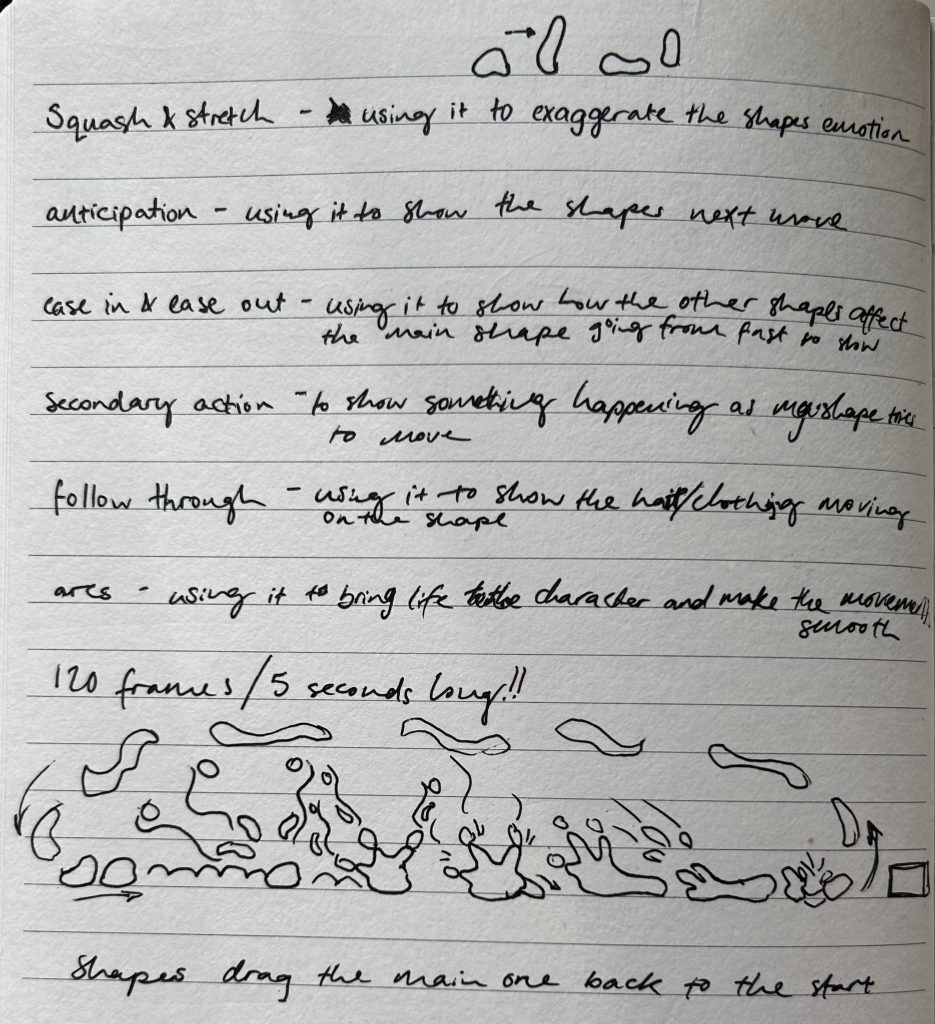 Squash & stretch - using it to exaggerate the shapes emotion
anticipation - using it to show the shapes next move
ease in & ease out - using it to show how the other shapes affect
the main shape going from fast to slow
secondary action - to show something happening as shape tries
to move
follow through - using it to show the hair/clothing moving
on the shape
arcs - using it to bring life to the character and make the movement
smooth
120 frames/5 seconds long!!
Shapes drag the main one back to the start